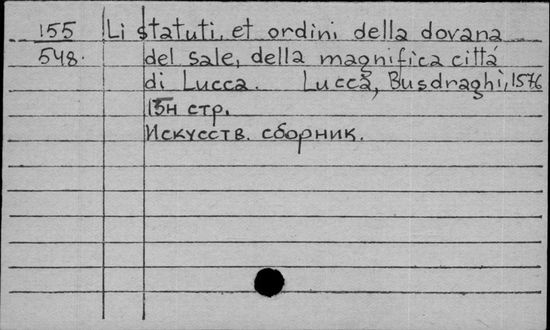 155 Li statuti, et ordini della dovana
548. del sale, della magnifica cittá
di Lucca. Lucca, Busdraghi, 1576
15н стр.
Искусств. сборник.